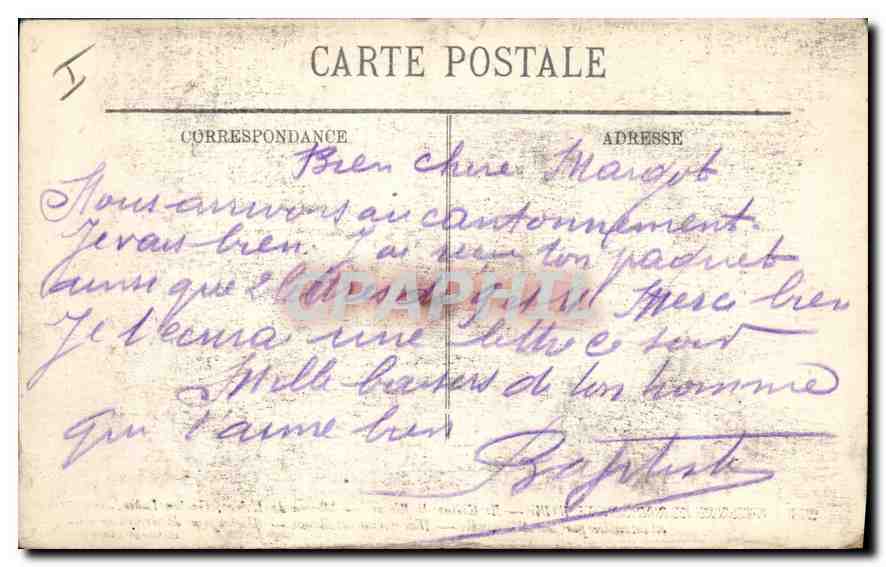 I
CARTE POSTALE
CORRESPONDANCE
ADRESSE
Bien chere Margot
Nous arrivons au cantonnement.
Je vais bien. J'ai reçu ton paquet
ainsi que 2 lettres Merci bien
Je t'ecrirai une lettre ce soir
Mille baisers de ton homme
qui t'aime bien
Baptiste
CPAPHIL